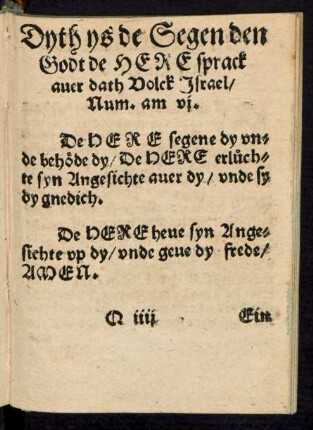 Dyth ys de Segen den
Godt de HERE sprack
auer dath Volck Jsrael/
Num. am vj.
De HERE segene dy vn-
de behöde dy/ De HERE erlüch-
te syn Angesichte auer dy/ vnde sy
dy gnedich.
De HERE heue syn Ange-
sichte vp dy/ vnde geue dy frede/
AMEN.
Q iiij Ein